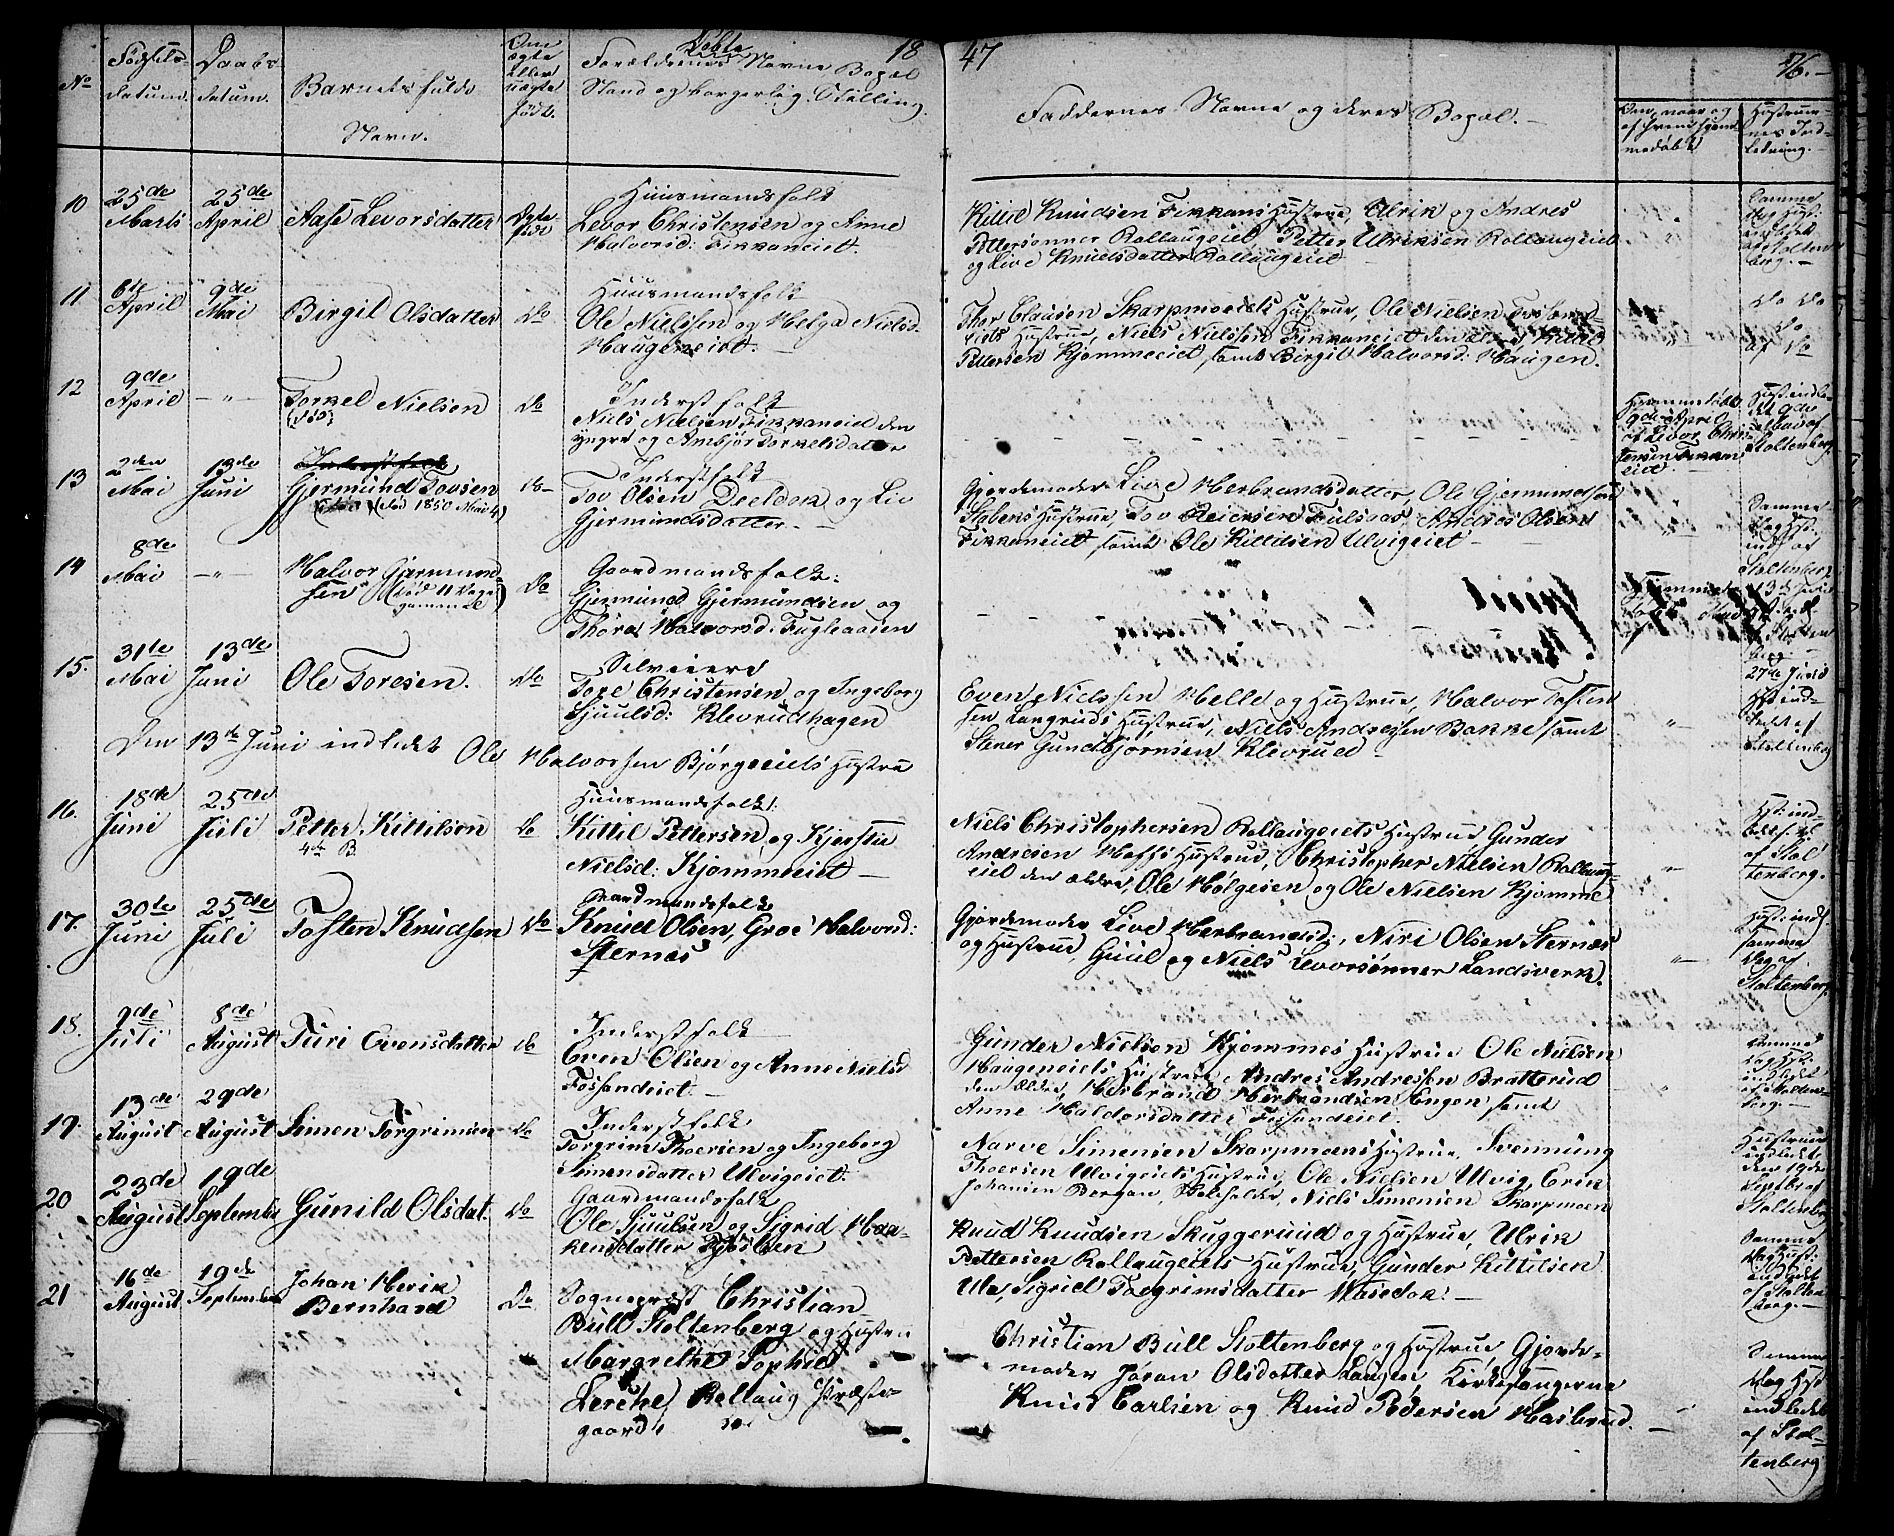 Døbte 18 47 76.
No
Fødsels-
datum.
Daabs
datum.
Barnets fulde
Navn.
Om
ægte
eller
uægte
født.
Forældrenes Navne Bopæl
Stand og borgerlig Stilling.
Faddernes Navne og deres Bopæl.
10
25de
Marts
25de
April
Aase Levorsdatter
Ægte
født
Huusmandsfolk
Levor Christensen og Anne
Halvorsd: Fikkaneiet.
Kittil Knudsen Fikkans Hustrue, Ulrik og Andres
Pettersønner Rollaugeiet, Petter Ulriksen Rollaugeiet
og Live Knudsdatter Rollaugeiet
11
6te
April
9de
Mai
Birgit Olsdatter
Do
Huusmandsfolk
Ole Nielssen og Helga Nielsd.
Haugeneiet.
Thor Clausen Skarpmoeiets Hustrue, Ole Nielsen Fossan-
eiets Hustrue, Niels Nielssen Fikkaneiet den ældre, Kittil
Pettersen Kjommeeiet, samt Birgit Halvorsd: Haugen.
Do Do
Do
af Do
12
9de
April
Torkel Nielsen
(død)
Do
Inderstfolk
Niels Nielsen Fikkaneiet den
yngre og Ambjør Torkelsdatter
Hjemmedøbt
9de April
af Levor Chris-
tensen Fikkan
eiet
13
2den
Mai
13de
Juni
Gjermund Tovsen
(død 1850 Mai 4)
Do
Inderstfolk
Tov Olsen Deeldok og Liv
Gjermundsdatter.
Gjordemoder Live Herbrandsdatter, Ole Gjermundsen
Stabens Hustrue, Tov Reiersen Fulsaas, Andres Olsen
Fikkaneiet, samt Ole Kittilsen Ulvigeiet
14
8de
Mai
Halvor Gjermund-
sen (død 11 Dage
gammel)
Do
Gaardmandsfolk:
Gjermund Gjermundsen og
Thora Halvorsd: Fugleaasen
15.
31te
Mai
13de
Juni
Ole Toresen.
Do
Selveiere
Tore Christensen og Ingeborg
Sjuulsd: Klevrudhagen
Even Nielssen Helle og Hustrue, Halvor Tosten
sen Langruds Hustrue, Niels Andressen Bakke samt
Stener Gundbjørnsen Klevrued
27de Juni
Hst: ind-
ledet af
Stoltenberg
Den 13de Juni indledet Ole Halvorsen Bjørgeeiets Hustrue
16.
18de
Juni
25de
Juli
Petter Kittilsen
4de B.
Do
Huusmandsfolk:
Kittil Pettersen og Kjersti
Nielsd: Kjommeeiet
Niels Christophersen Rollaugeiets Hustrue, Gunder
Andresen Hoffs Hustrue, Christopher Nielsen Rollaug-
eiet den ældre, Ole Helgesen og Ole Nielsen Kjomme
Hst: ind-
ledet s. d.
af Stol
tenberg.
17.
30te
Juni
25de
Juli
Tosten Knudsen
Do
Gaardmandsfolk
Knud Olsen, Groe Halvorsd:
Sternæs
Gjordemoder Live Herbrandsd:, Niri Olsen Sternæs
og Hustrue, Guul og Niels Levorsønner Landsverk.
Hust: indl
samme
Dag af
Stoltenberg
18.
9de
Juli
8de
August
Turi Evensdatter
Do
Inderstfolk
Even Olsen og Anne Nielsd
Fossandeiet.
Gunder Nielsen Kjommes Hustrue Ole Nielsen
Haugeneiets Hustrue, Andres Andressen Bratterud
den ældre, Herbrand Herbrandsen Engen samt
Anne Haldorsdatter Fossandeiet.
samme
Dag Hst:
indledet
af Stolten-
berg.
19.
13de
August
29de
August
Simen Torgrimsen
Do
Inderstfolk
Torgrim Thoersen og Ingeborg
Simensdatter Ulvigeiet.
Narve Simensen Skarpmoens Hustrue, Svennung
Thoersen Ulvigeiets Hustrue, Ole Nielsen Ulvig, Erik
Johansen Bergan, Skoleholder, Niels Simensen Skarpmoen
Hustruen
indledet
den 19de
Septbr af
Stoltenberg
20
23de
August
19de
September
Gunild Olsdat.
Do
Gaardmandsfolk
Ole Sjuulsen og Sigrid Haa-
kensdatter
Knud Knudsen Skuggerud og Hustrue, Ulrik
Pettersen Rollaugeiets Hustrue, Gunder Kittilsen
Ula, Sigrid Torgrimsdatter
Samme
Dag Hust:
indledet
af Stolten
berg.
21
16de
August
19de
September
Johan Henrik
Bernhard
Do
Sognepræst Christian
Bull Stoltenberg og Hustru
Margrethe Sophie
Lerche Rollaug Præste-
gaard.
Christian Bull Stoltenberg og Hustrue Gjorde-
moder Jøran Olsdatter Kirkesangerne
Knud Carlsen og Knud Pedersen Haslerud.
Samme
Dag Hst
indledet
af Stol-
tenberg